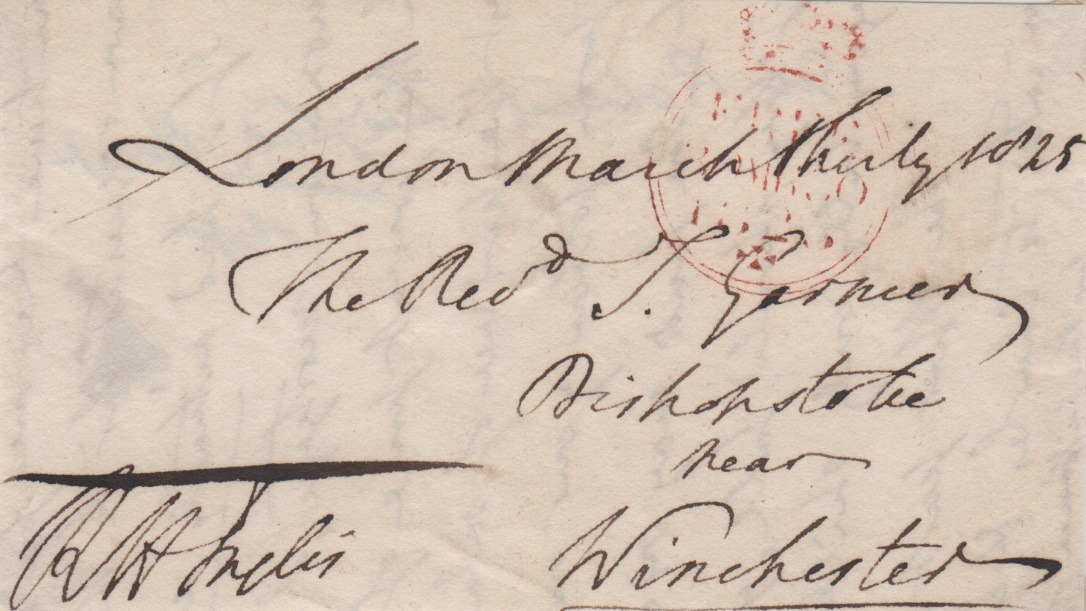 London March Thirty 1825
The Revd T. Garnier
Bishopstoke
near
Winchester
R H Inglis